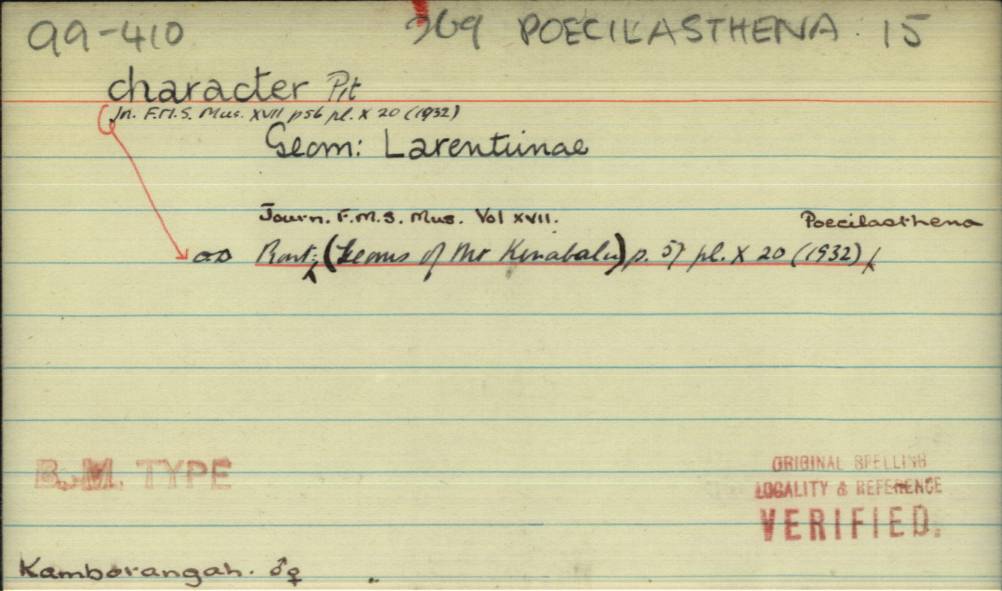 99-410 369 POECILASTHENA. 15
character Prt
Jn. F.M.S. Mus. XVII p56 pl. X 20 (1932)
Geom: Larentiinae
Journ. F.M.S. Mus. Vol XVII. Poecilasthena
(Geoms of Mt Kinabalu) p. 57 pl. X 20 (1932)
B.M. TYPE
ORIGINAL SPELLING
LOCALITY & REFERENCE
VERIFIED.
Kamborangah. ♂♀